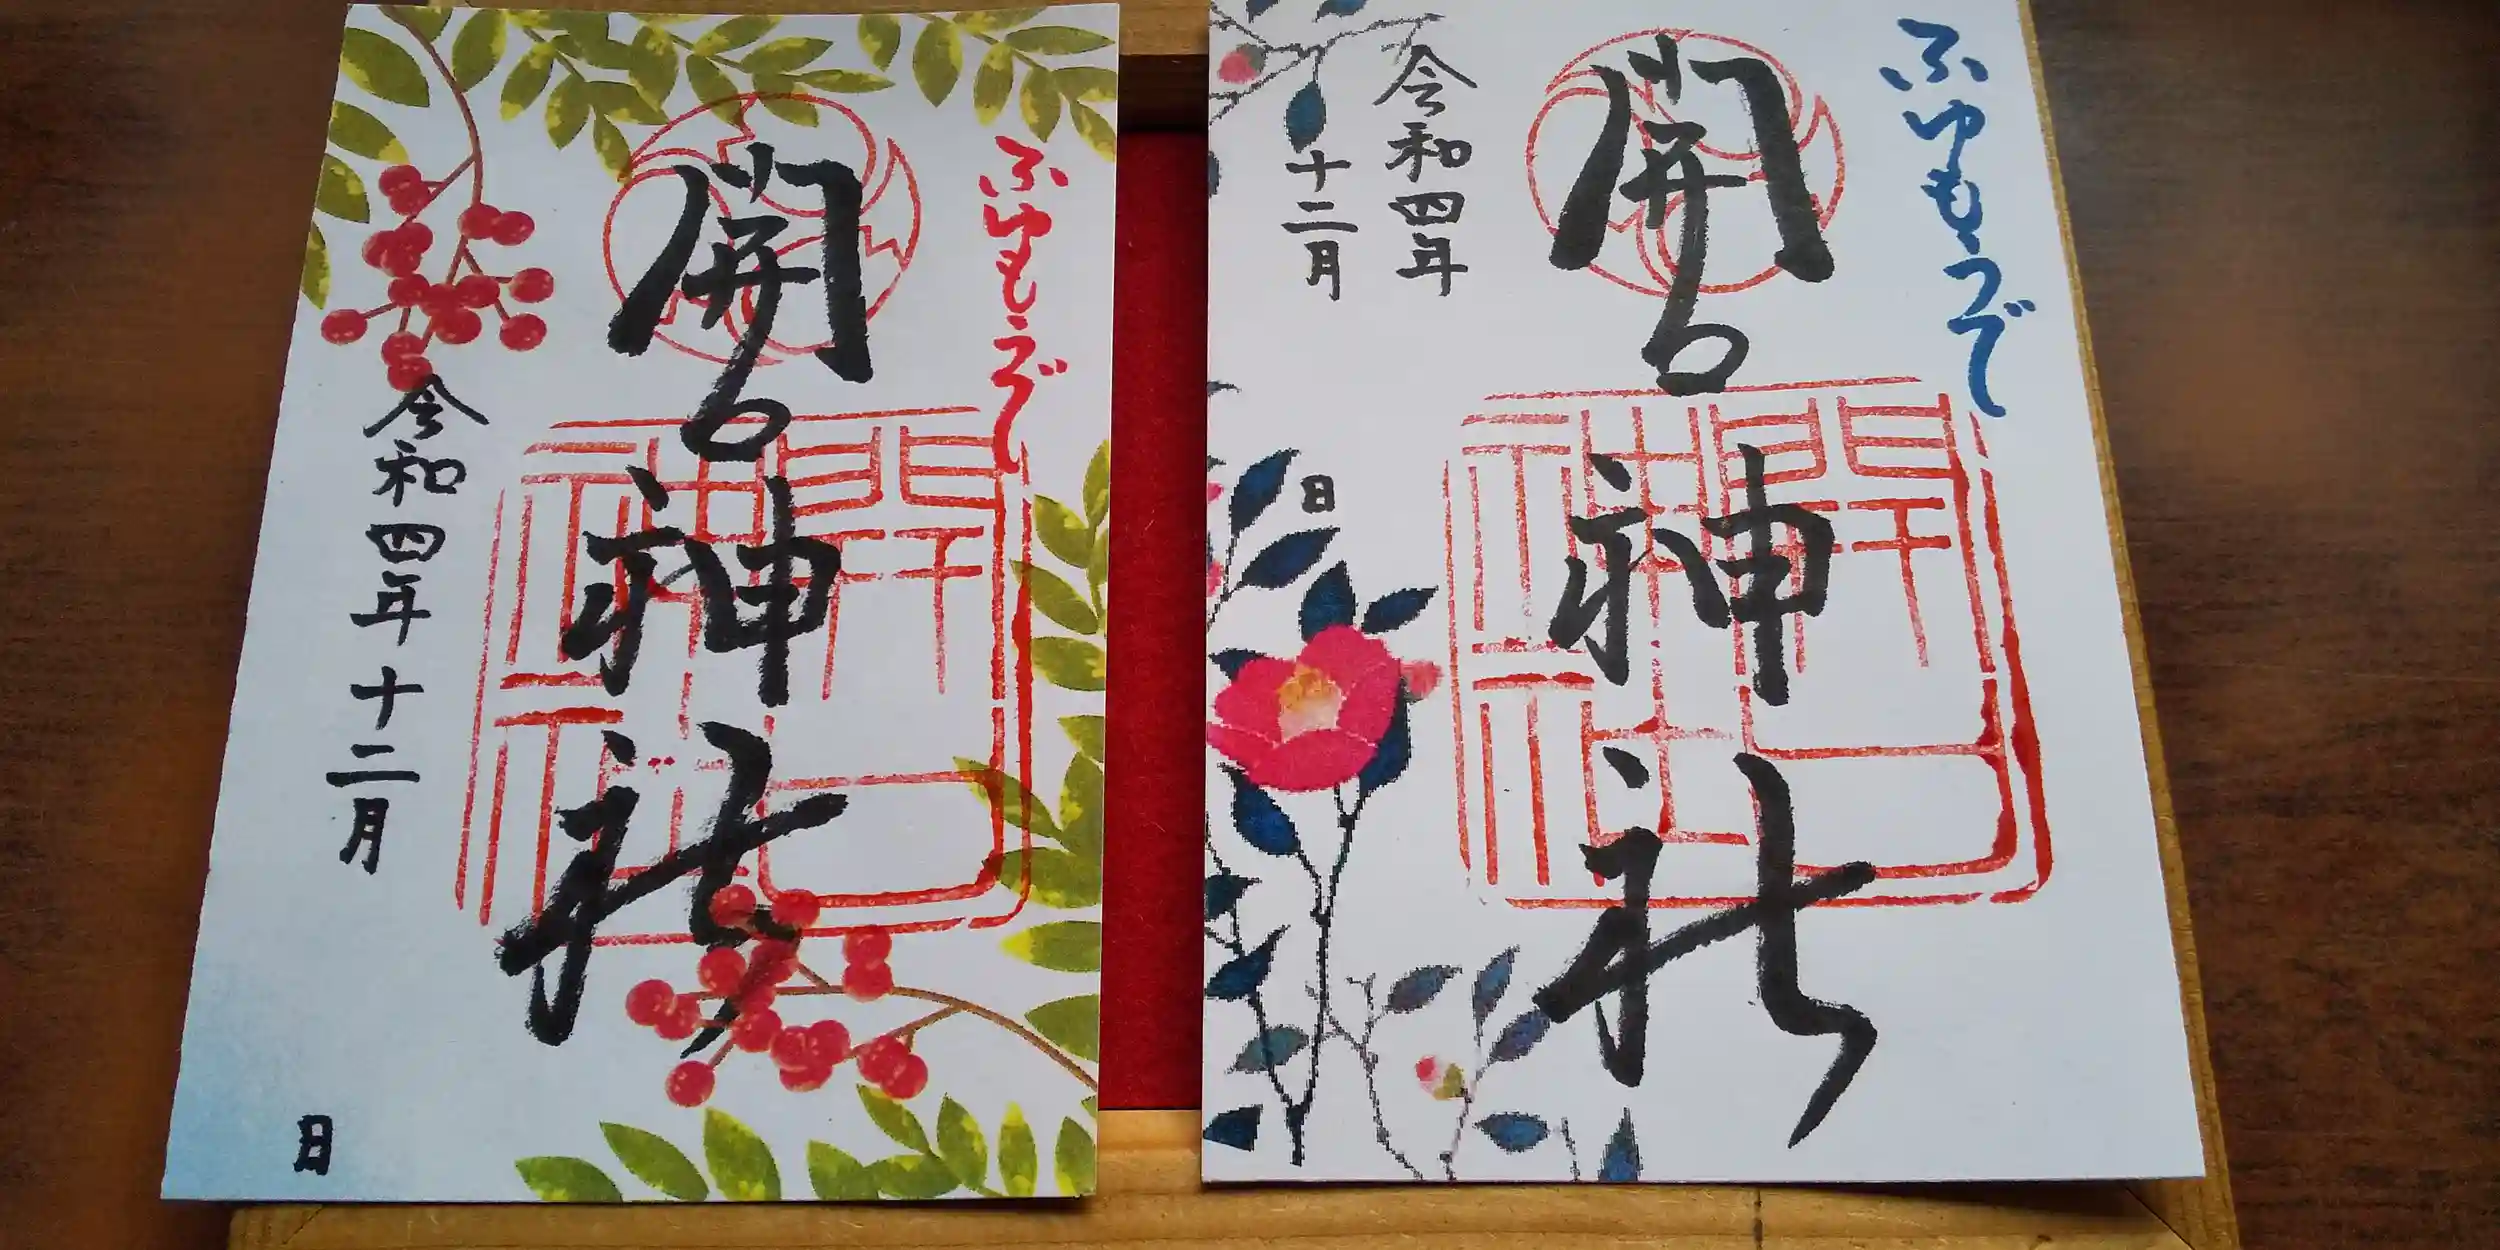 ふゆもうで
開口神社
開口神社
令和四年十二月
日
ふゆもうで
開口神社
開口神社
令和四年
十二月
日